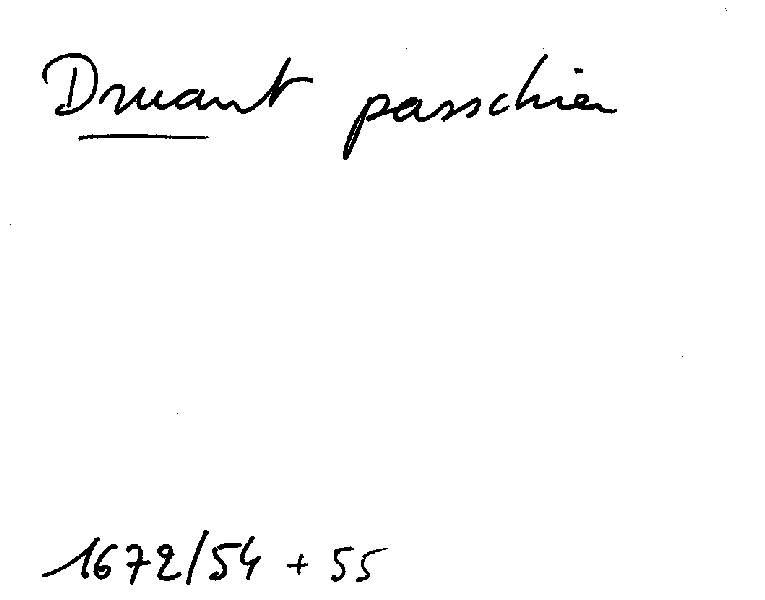 Druant passchier
1672/54 + 55